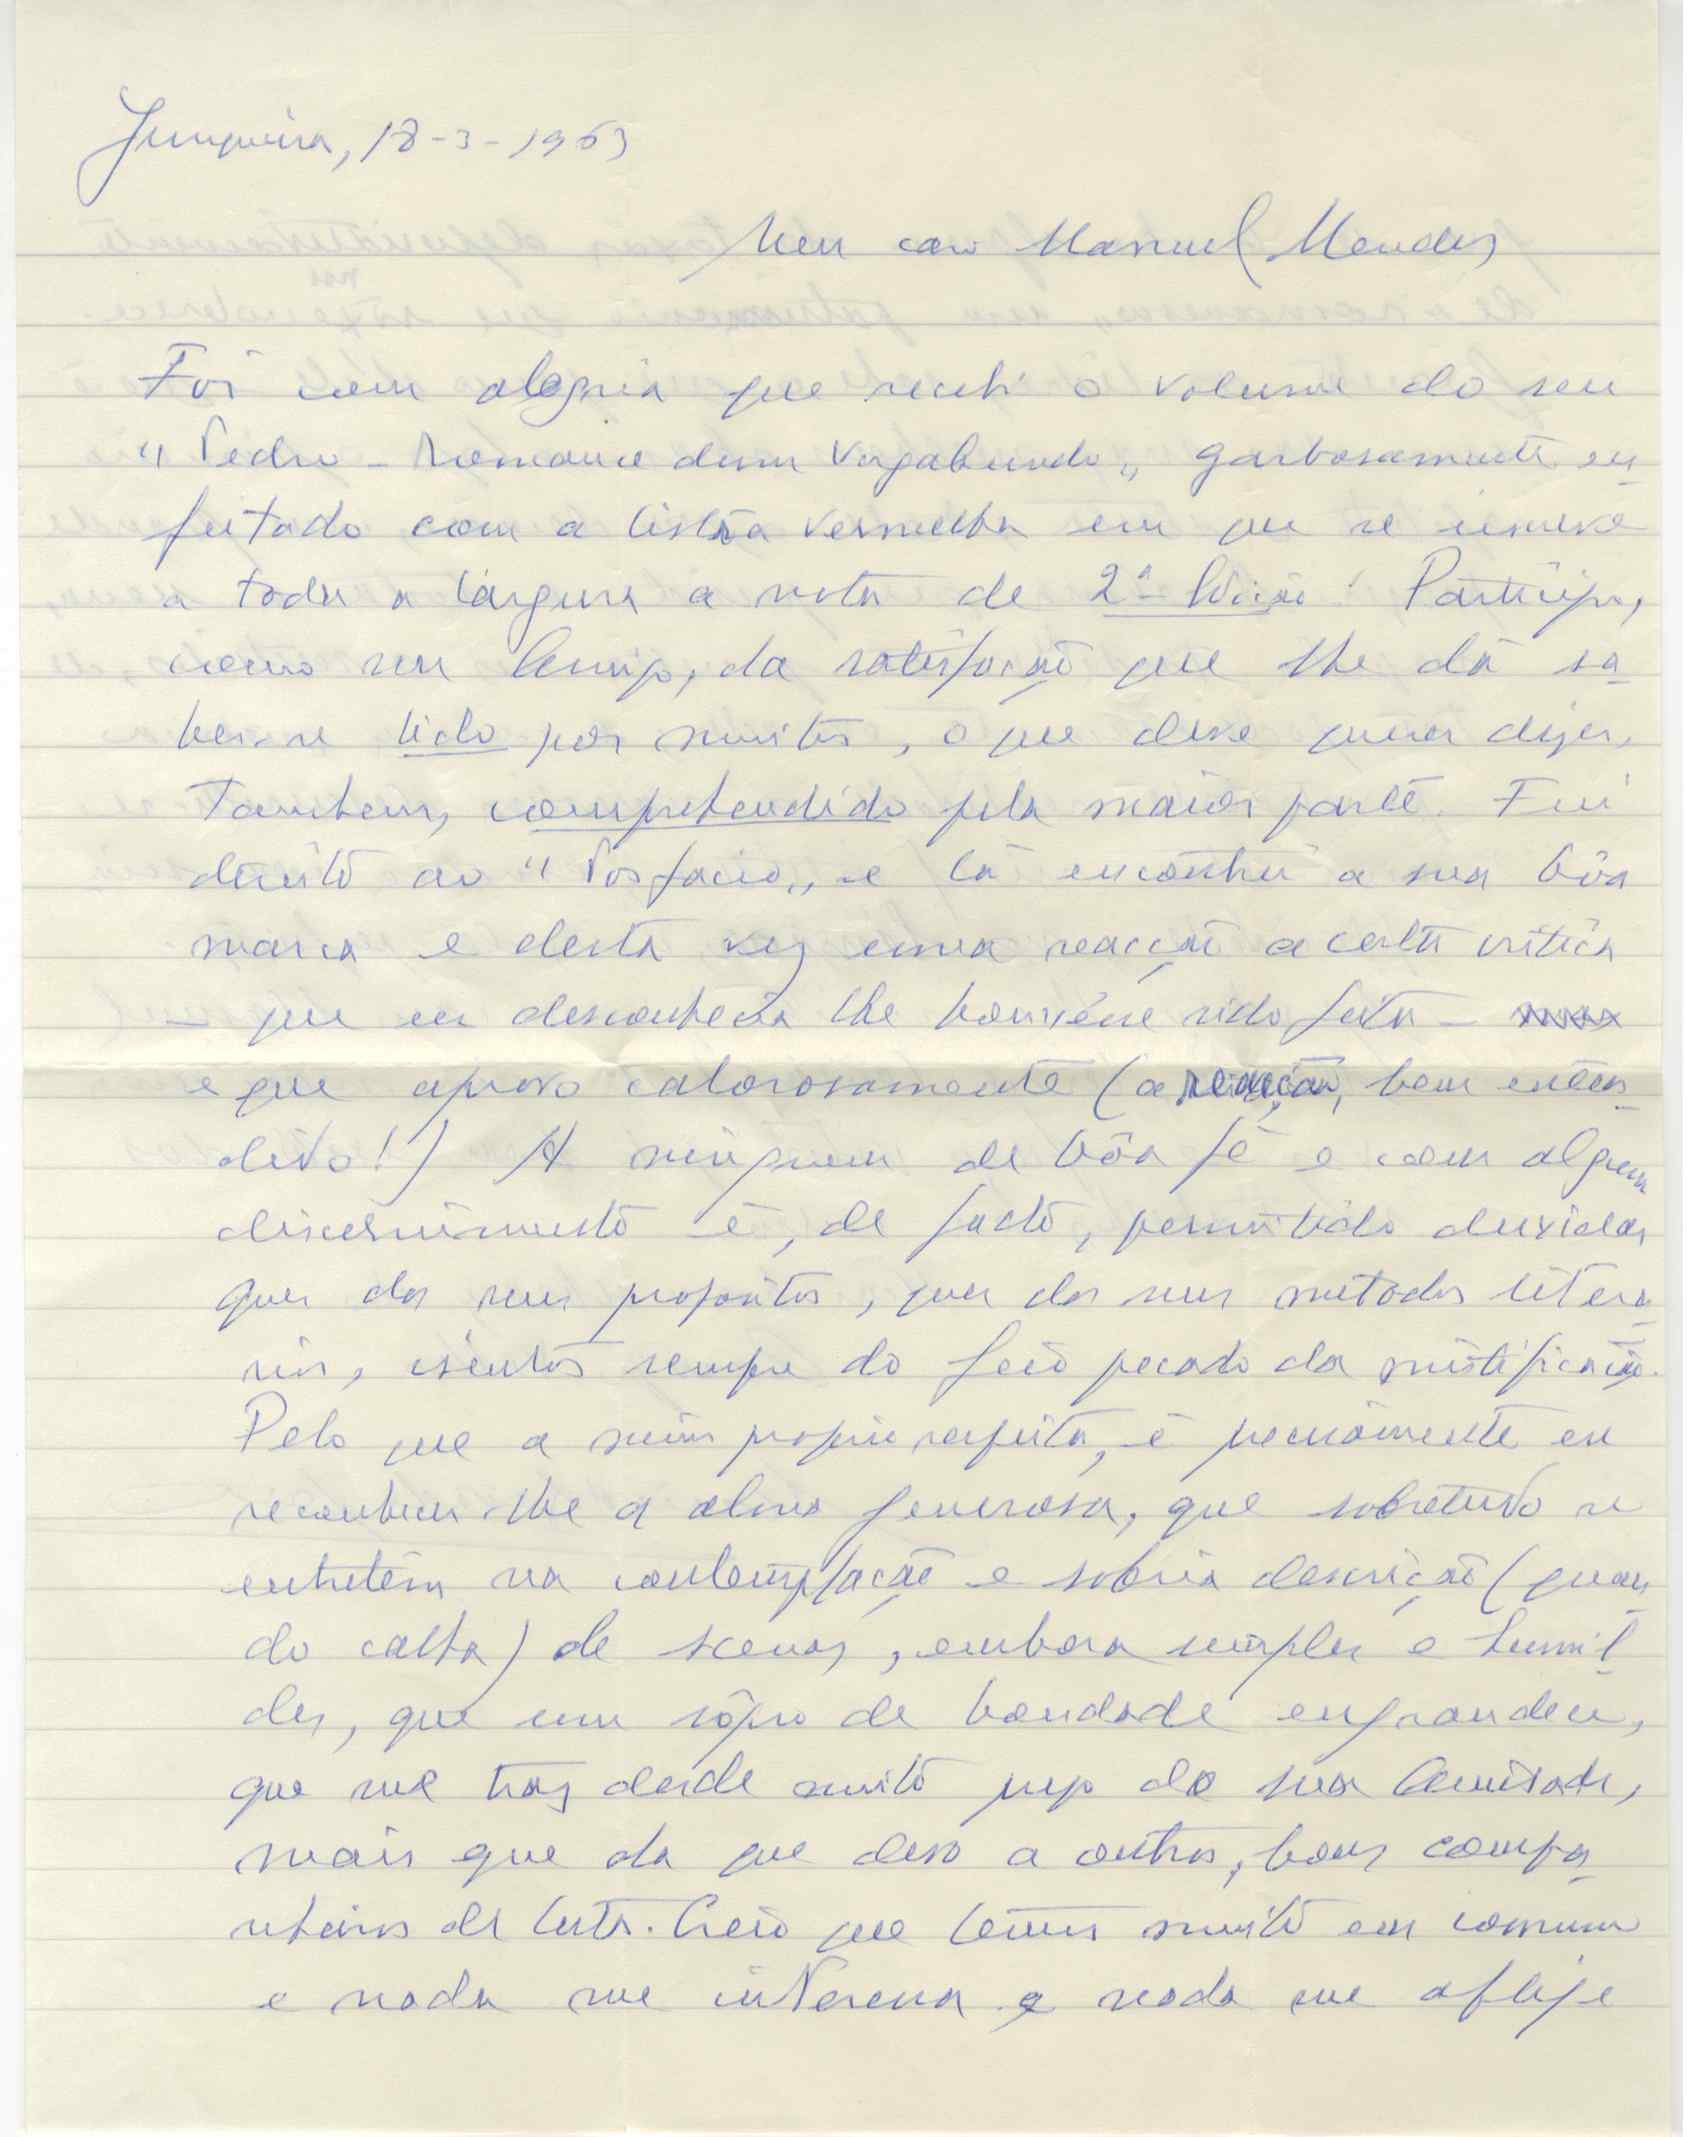 Junqueira, 18-3-1963
Meu caro Manuel Mendes
Foi com alegria que recebi o volume do seu
"Pedro - Romance dum Vagabundo", garbosamente en
feitado com a listra vermelha em que se inscreve
a toda a largura a nota de 2ª Edição! Participo,
como seu Amigo, da satisfação que lhe dá sa
ber-se lido por muitos, o que deve querer dizer,
tambem, comprehendido pela maior parte. Fui
direito ao "Posfacio" e lá encontrei a sua bôa
marca e desta vez uma reacção a certa critica
- que eu desconhecia lhe houvesse sido feita -
e que aprovo calorosamente (a reacção, bem enten
dido!) A ninguem de bôa fé e com algum
discernimento é, de facto, permitido duvidar
quer dos seus propositos, quer dos seus metodos litera
rios, isentos sempre do feio pecado da mistificação.
Pelo que a mim proprio respeita, é precisamente eu
reconhecer-lhe a alma generosa, que sobretudo se
entretém na contemplação e sobria descrição (quan
do calha) de scenas, embora simples e humil
des, que um sôpro de bondade engrandece,
que me traz desde muito preso da sua Amisade,
mais que da que devo a outros, bons compa
nheiros de luta. Creio que temos muito em comum
e nada me interessa e nada me aflije